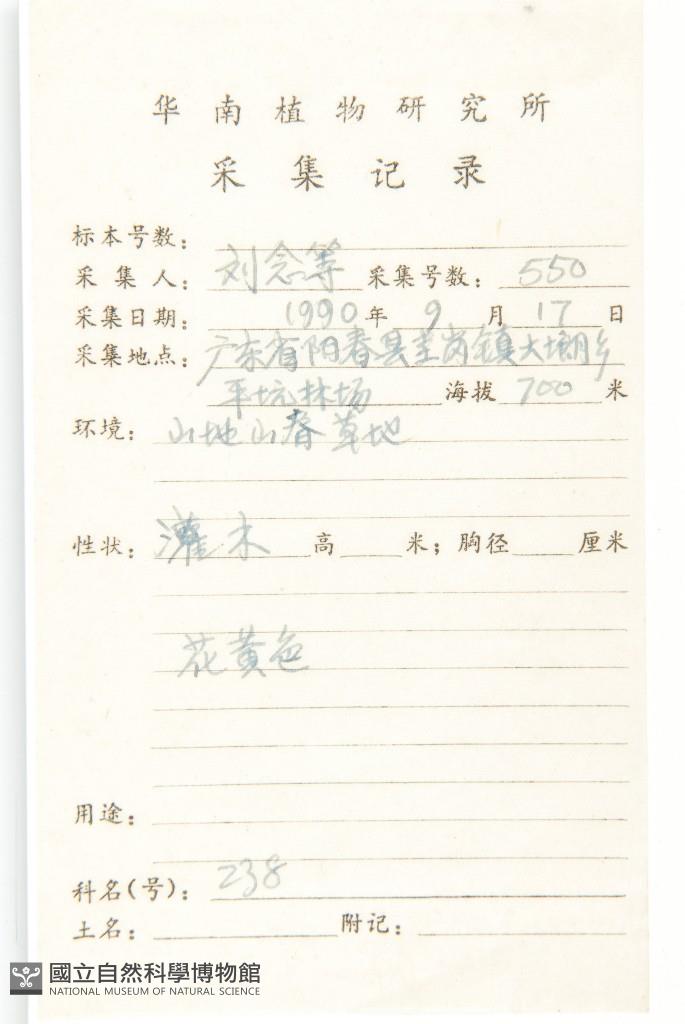 华南植物研究所
采集记录
标本号数：
采集人：刘念等 采集号数：550
采集日期：1990年9月17日
采集地点：广东省阳春县圭岗镇大塱乡
平坑林场 海拔700米
环境：山地山脊草地
性状：灌木 高 米；胸径 厘米
花黄色
用途：
科名(号)：238
土名： 附记：
國立自然科學博物館
NATIONAL MUSEUM OF NATURAL SCIENCE